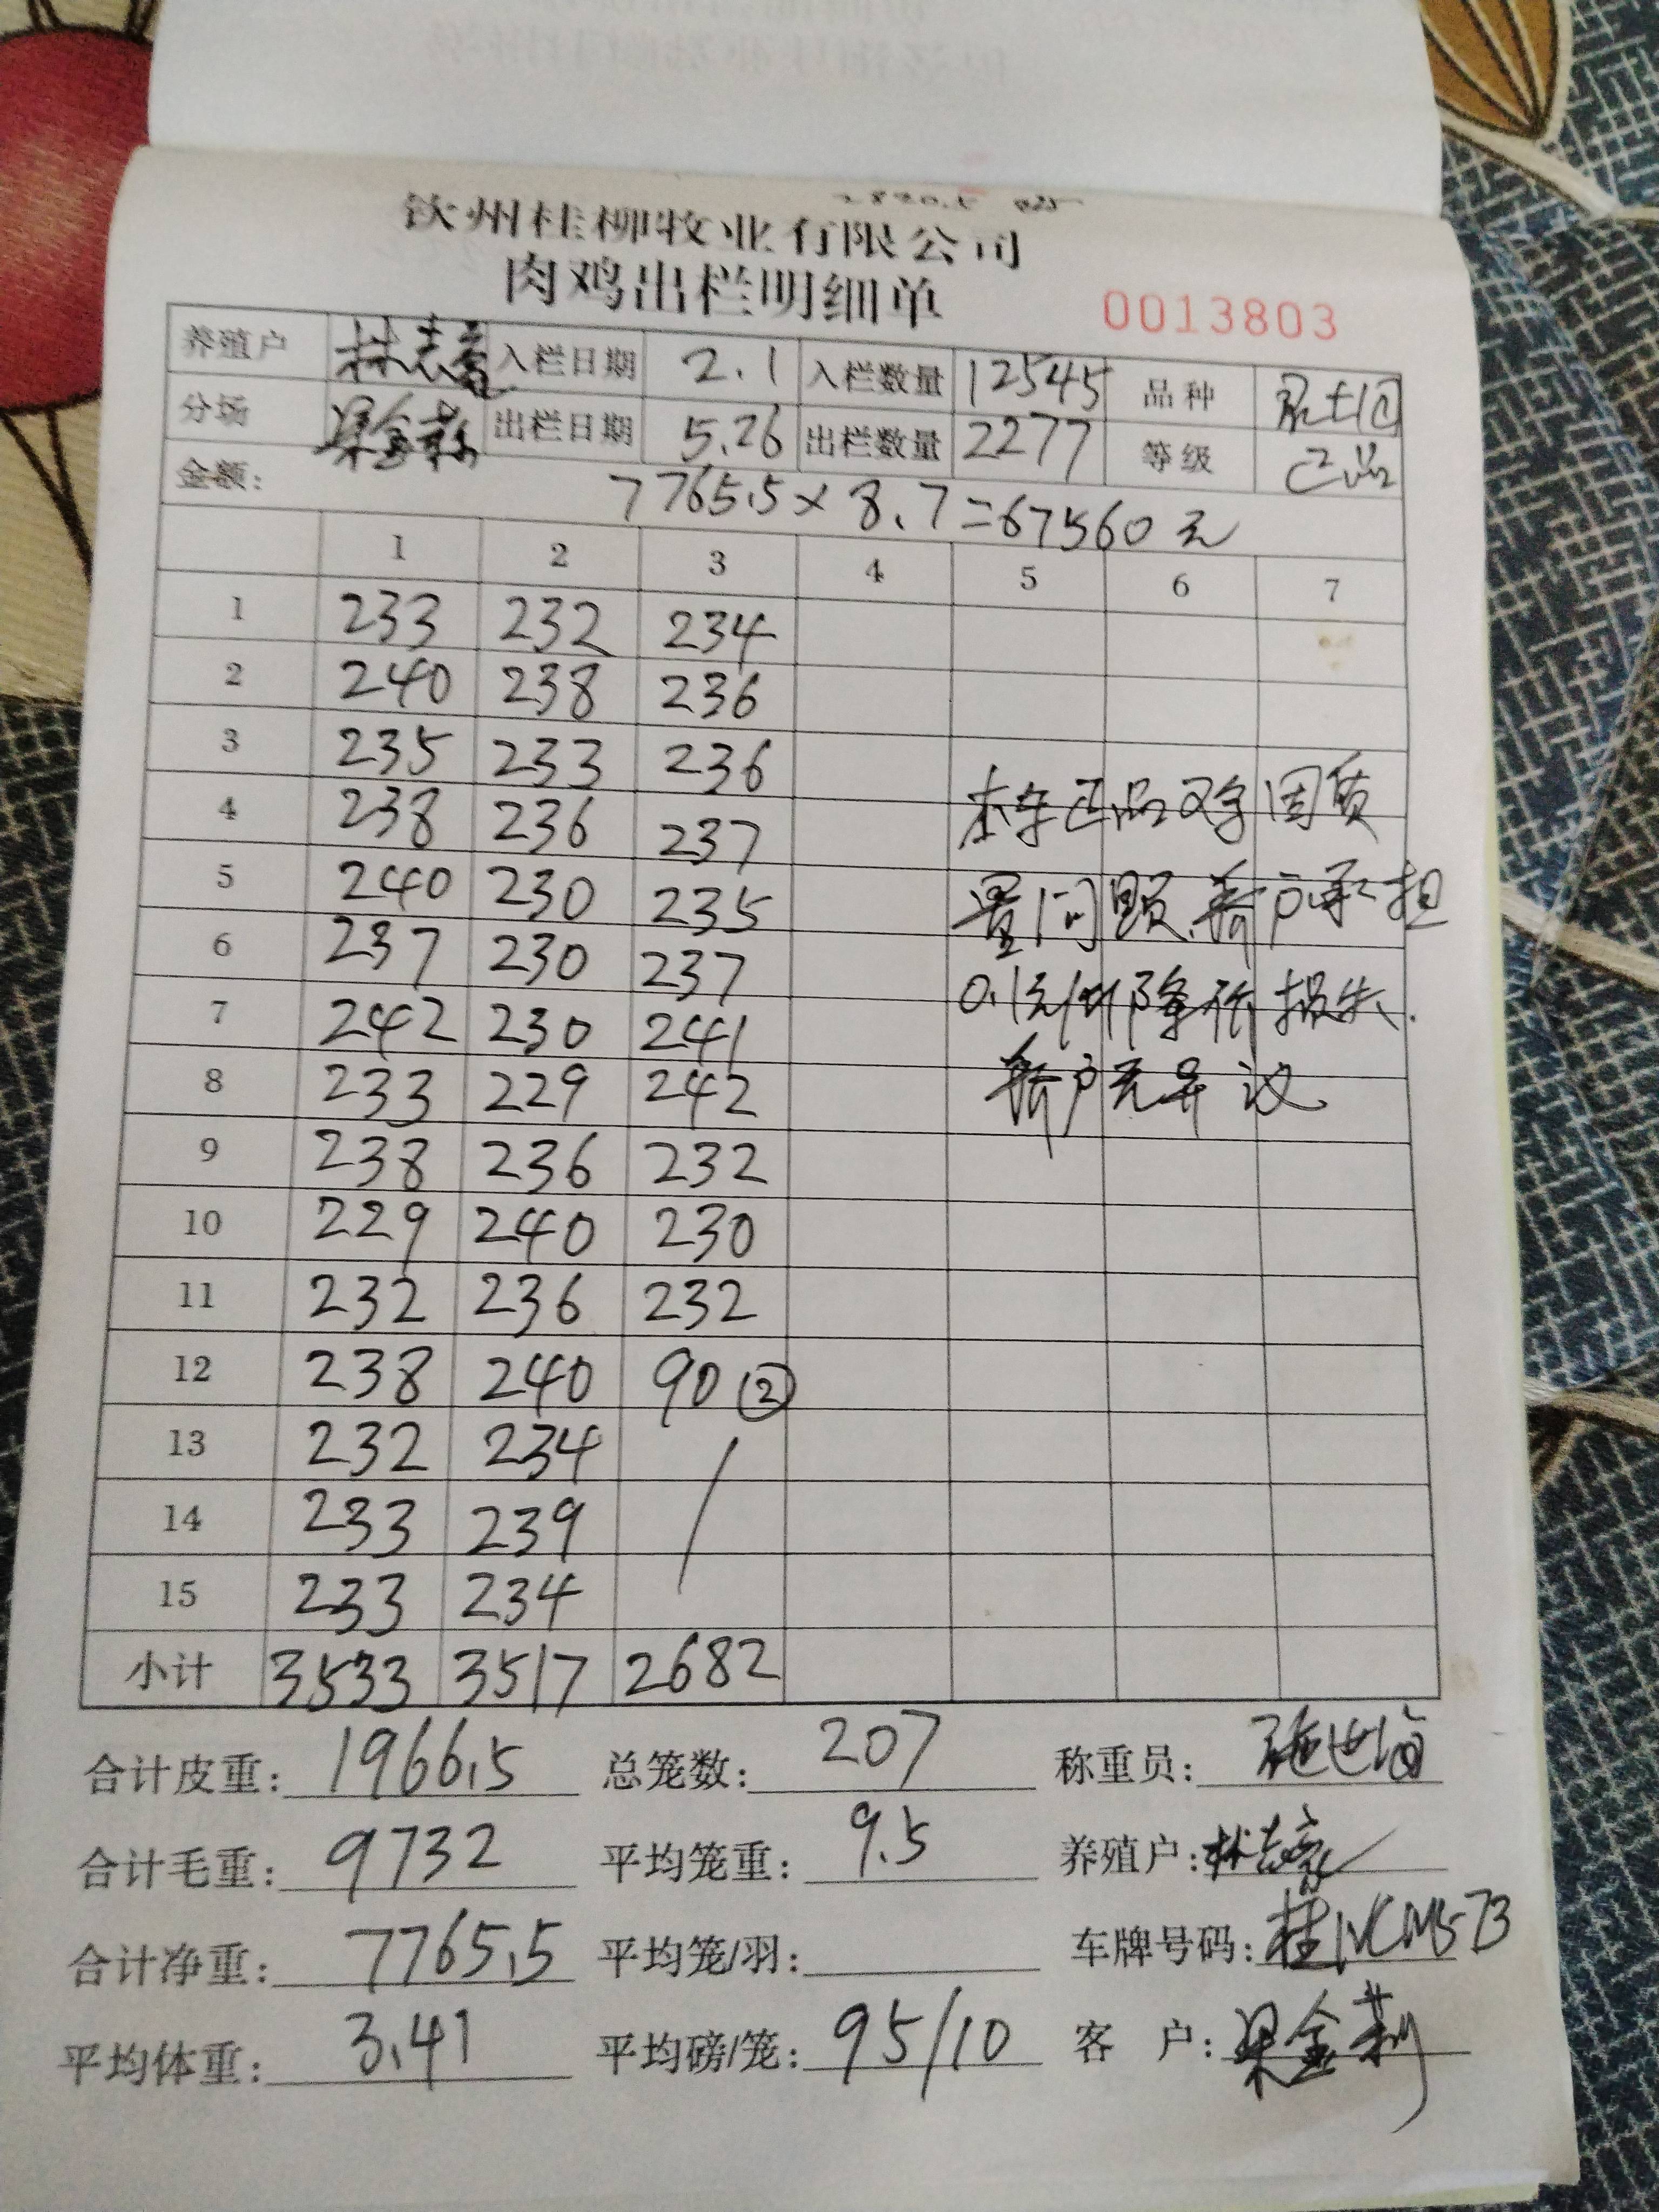 钦州桂柳牧业有限公司
肉鸡出栏明细单
0013803
养殖户 入栏日期 2.1 入栏数量 12545 品种
分场 梁金莉 出栏日期 5.26 出栏数量 2277 等级 正品
金额: 7765.5×8.7=67560元
1 2 3 4 5 6 7
1 233 232 234
2 240 238 236
3 235 233 236
4 238 236 237
5 240 230 235
6 237 230 237
7 242 230 241
8 233 229 242
9 238 236 232
10 229 240 230
11 232 236 232
12 238 240 90②
13 232 234
14 233 239
15 233 234
小计 3533 3517 2682
本车正品鸡因质
量问题,养户承担
0.1元/斤降价损失.
养户无异议
合计皮重: 1966.5 总笼数: 207 称重员:
合计毛重: 9732 平均笼重: 9.5 养殖户:
合计净重: 7765.5 平均笼/羽: 车牌号码: 桂NCM573
平均体重: 3.41 平均磅/笼: 95/10 客户: 梁金莉